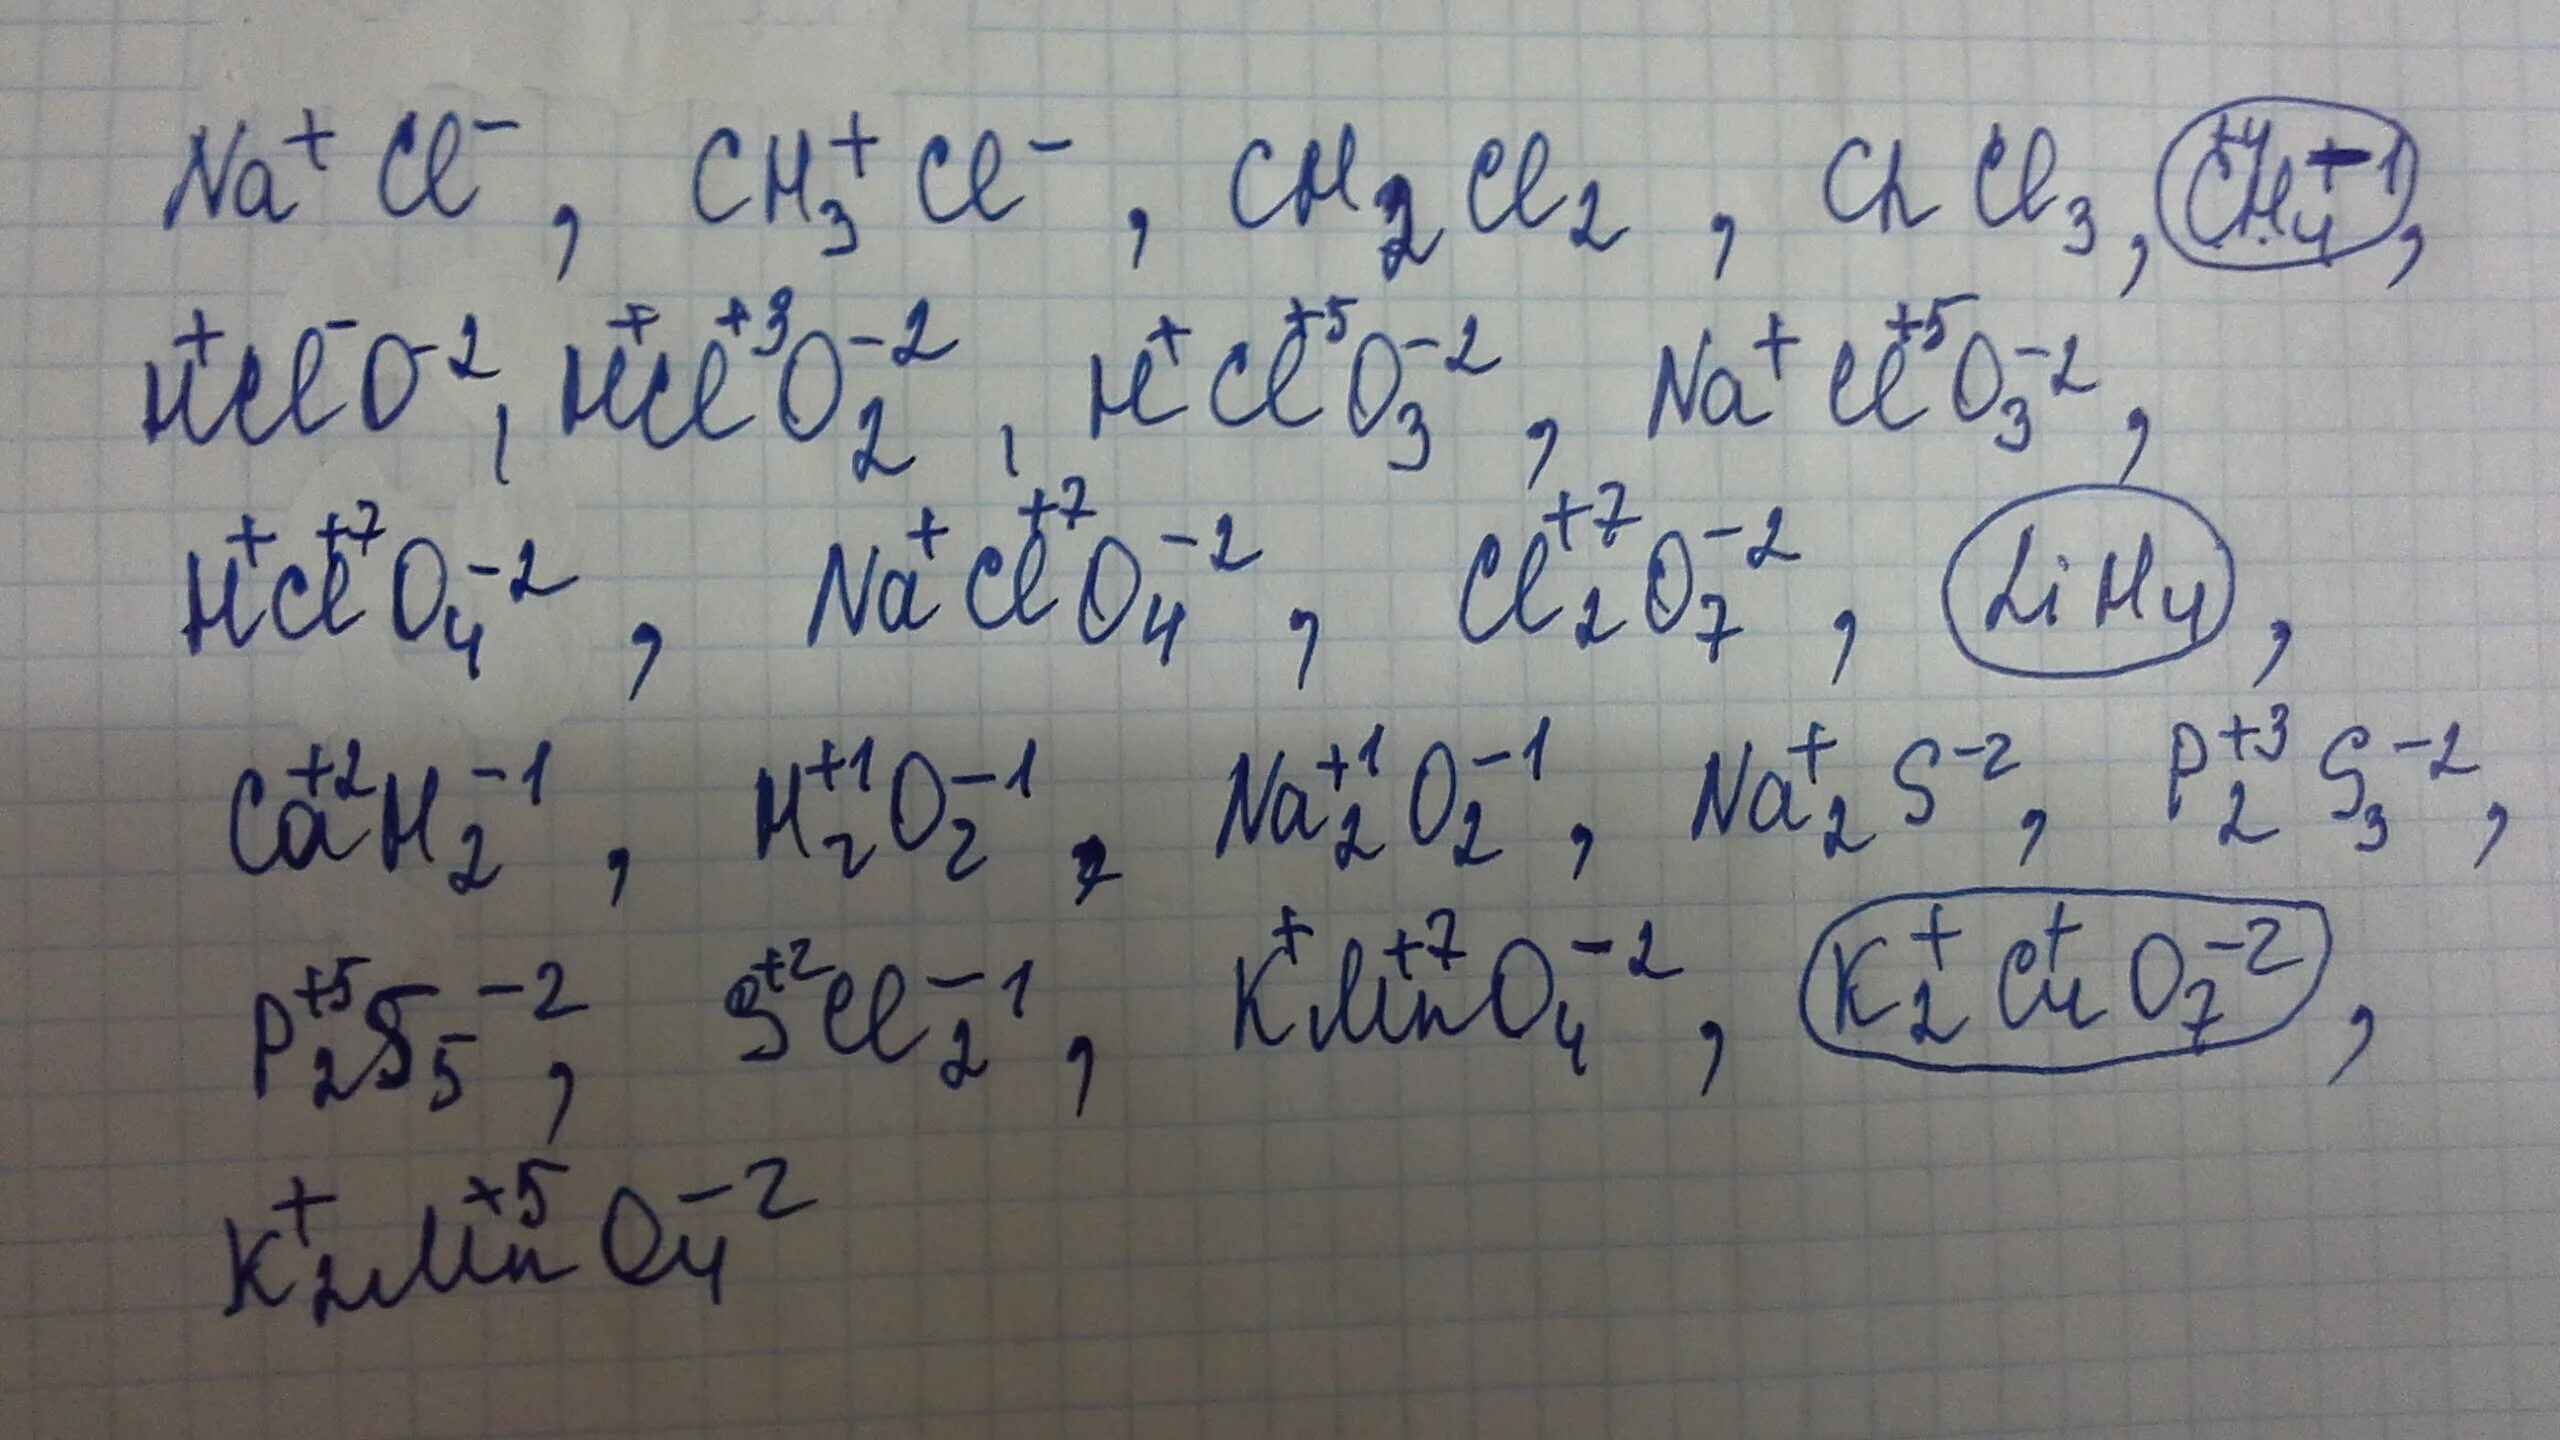 Na⁺Cl⁻, CH₃⁺Cl⁻, CH₂Cl₂, ChCl₃, C⁺⁴H₄⁺¹,
H⁺Cl⁻O⁻², H⁺Cl⁺³O₂⁻², H⁺Cl⁺⁵O₃⁻², Na⁺Cl⁺⁵O₃⁻²,
H⁺Cl⁺⁷O₄⁻², Na⁺Cl⁺⁷O₄⁻², Cl₂⁺⁷O₇⁻², LiH₄,
Ca⁺²H₂⁻¹, H₂⁺¹O₂⁻¹, Na₂⁺¹O₂⁻¹, Na₂⁺S⁻², P₂⁺³S₃⁻²,
P₂⁺⁵S₅⁻², S⁺²Cl₂⁻¹, K⁺Mn⁺⁷O₄⁻², K₂⁺Cu⁺O₇⁻²,
K₂⁺Mn⁺⁵O₄⁻²